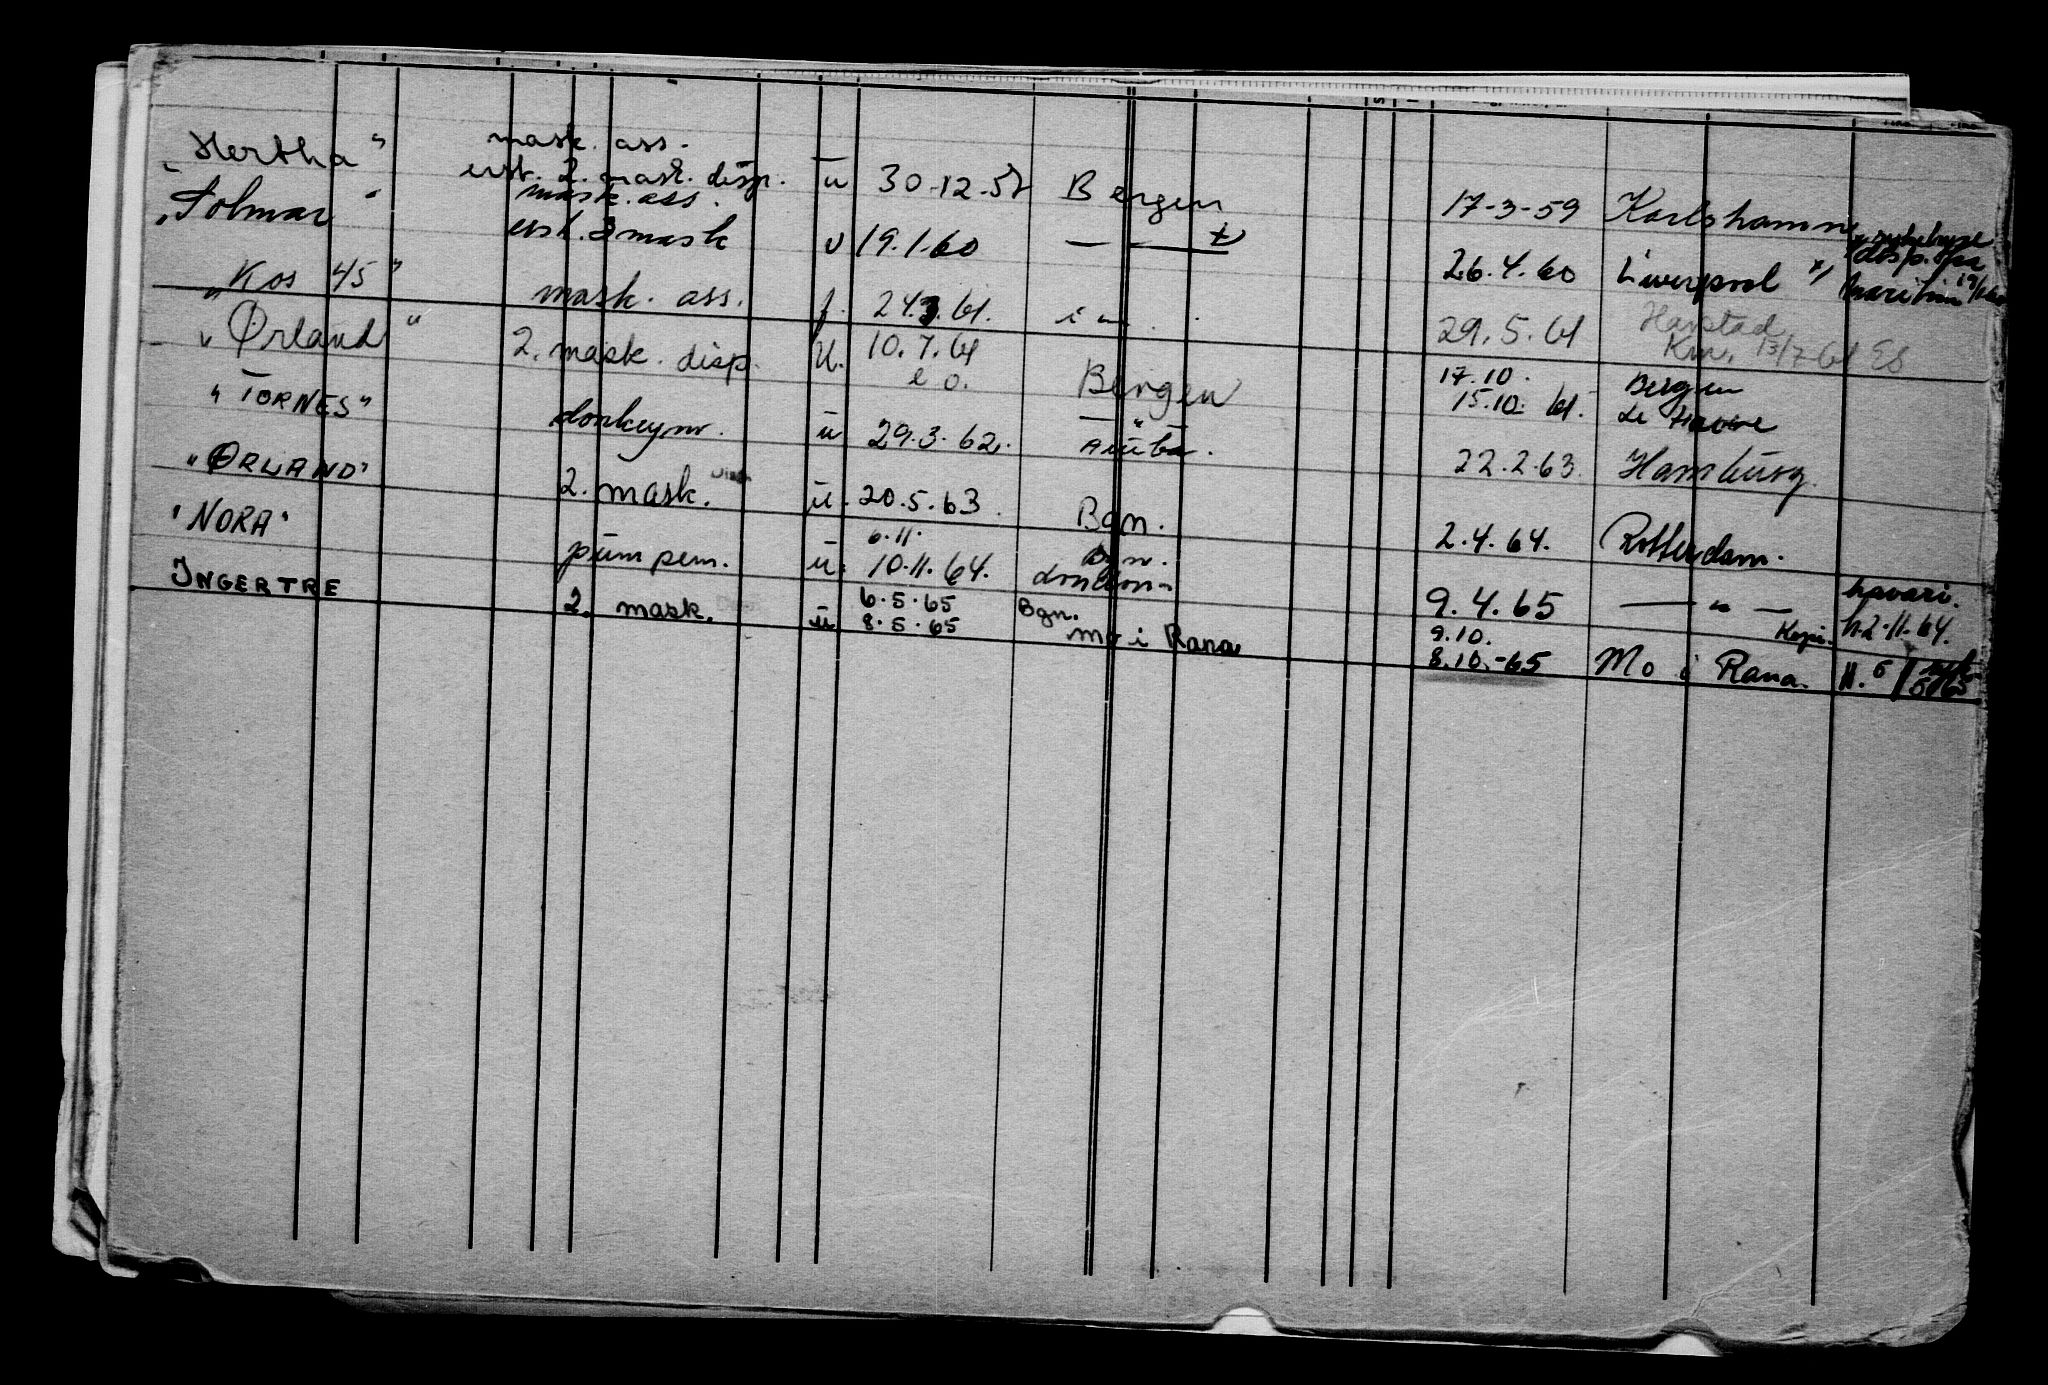 "Hertha" mask. ass. erst. 2. mask. disp. u 30-12-58 Bergen 17-3-59 Karlshamn
"Solmar" mask. ass. erst. 3 mask u 19.1.60 — " — 26.4.60 Liverpool sykehuse disp. fra
"Kos 45" mask. ass. f. 24.3.61. 29.5.61 Harstad Krn. 13/7-61 ES
"Ørland" 2. mask. disp. u. 10.7.61 e.o. Bergen — " — 17.10. 15.10.61. Bergen Le Havre
"TORNES" donkeym. u 29.3.62. Aruba. 22.2.63. Hamburg.
"ØRLAND" 2. mask. u. 20.5.63. Bgn. 2.4.64. Rotterdam.
"NORA" pumpem. u. 6.11. 10.11.64. Bgn. London 9.4.65 — " — havari. h.2.11.64.
INGERTRE 2. mask. u 6.5.65 8.5.65 Bgn. Mo i Rana 9.10. 8.10.-65 Kopi. Mo i Rana.